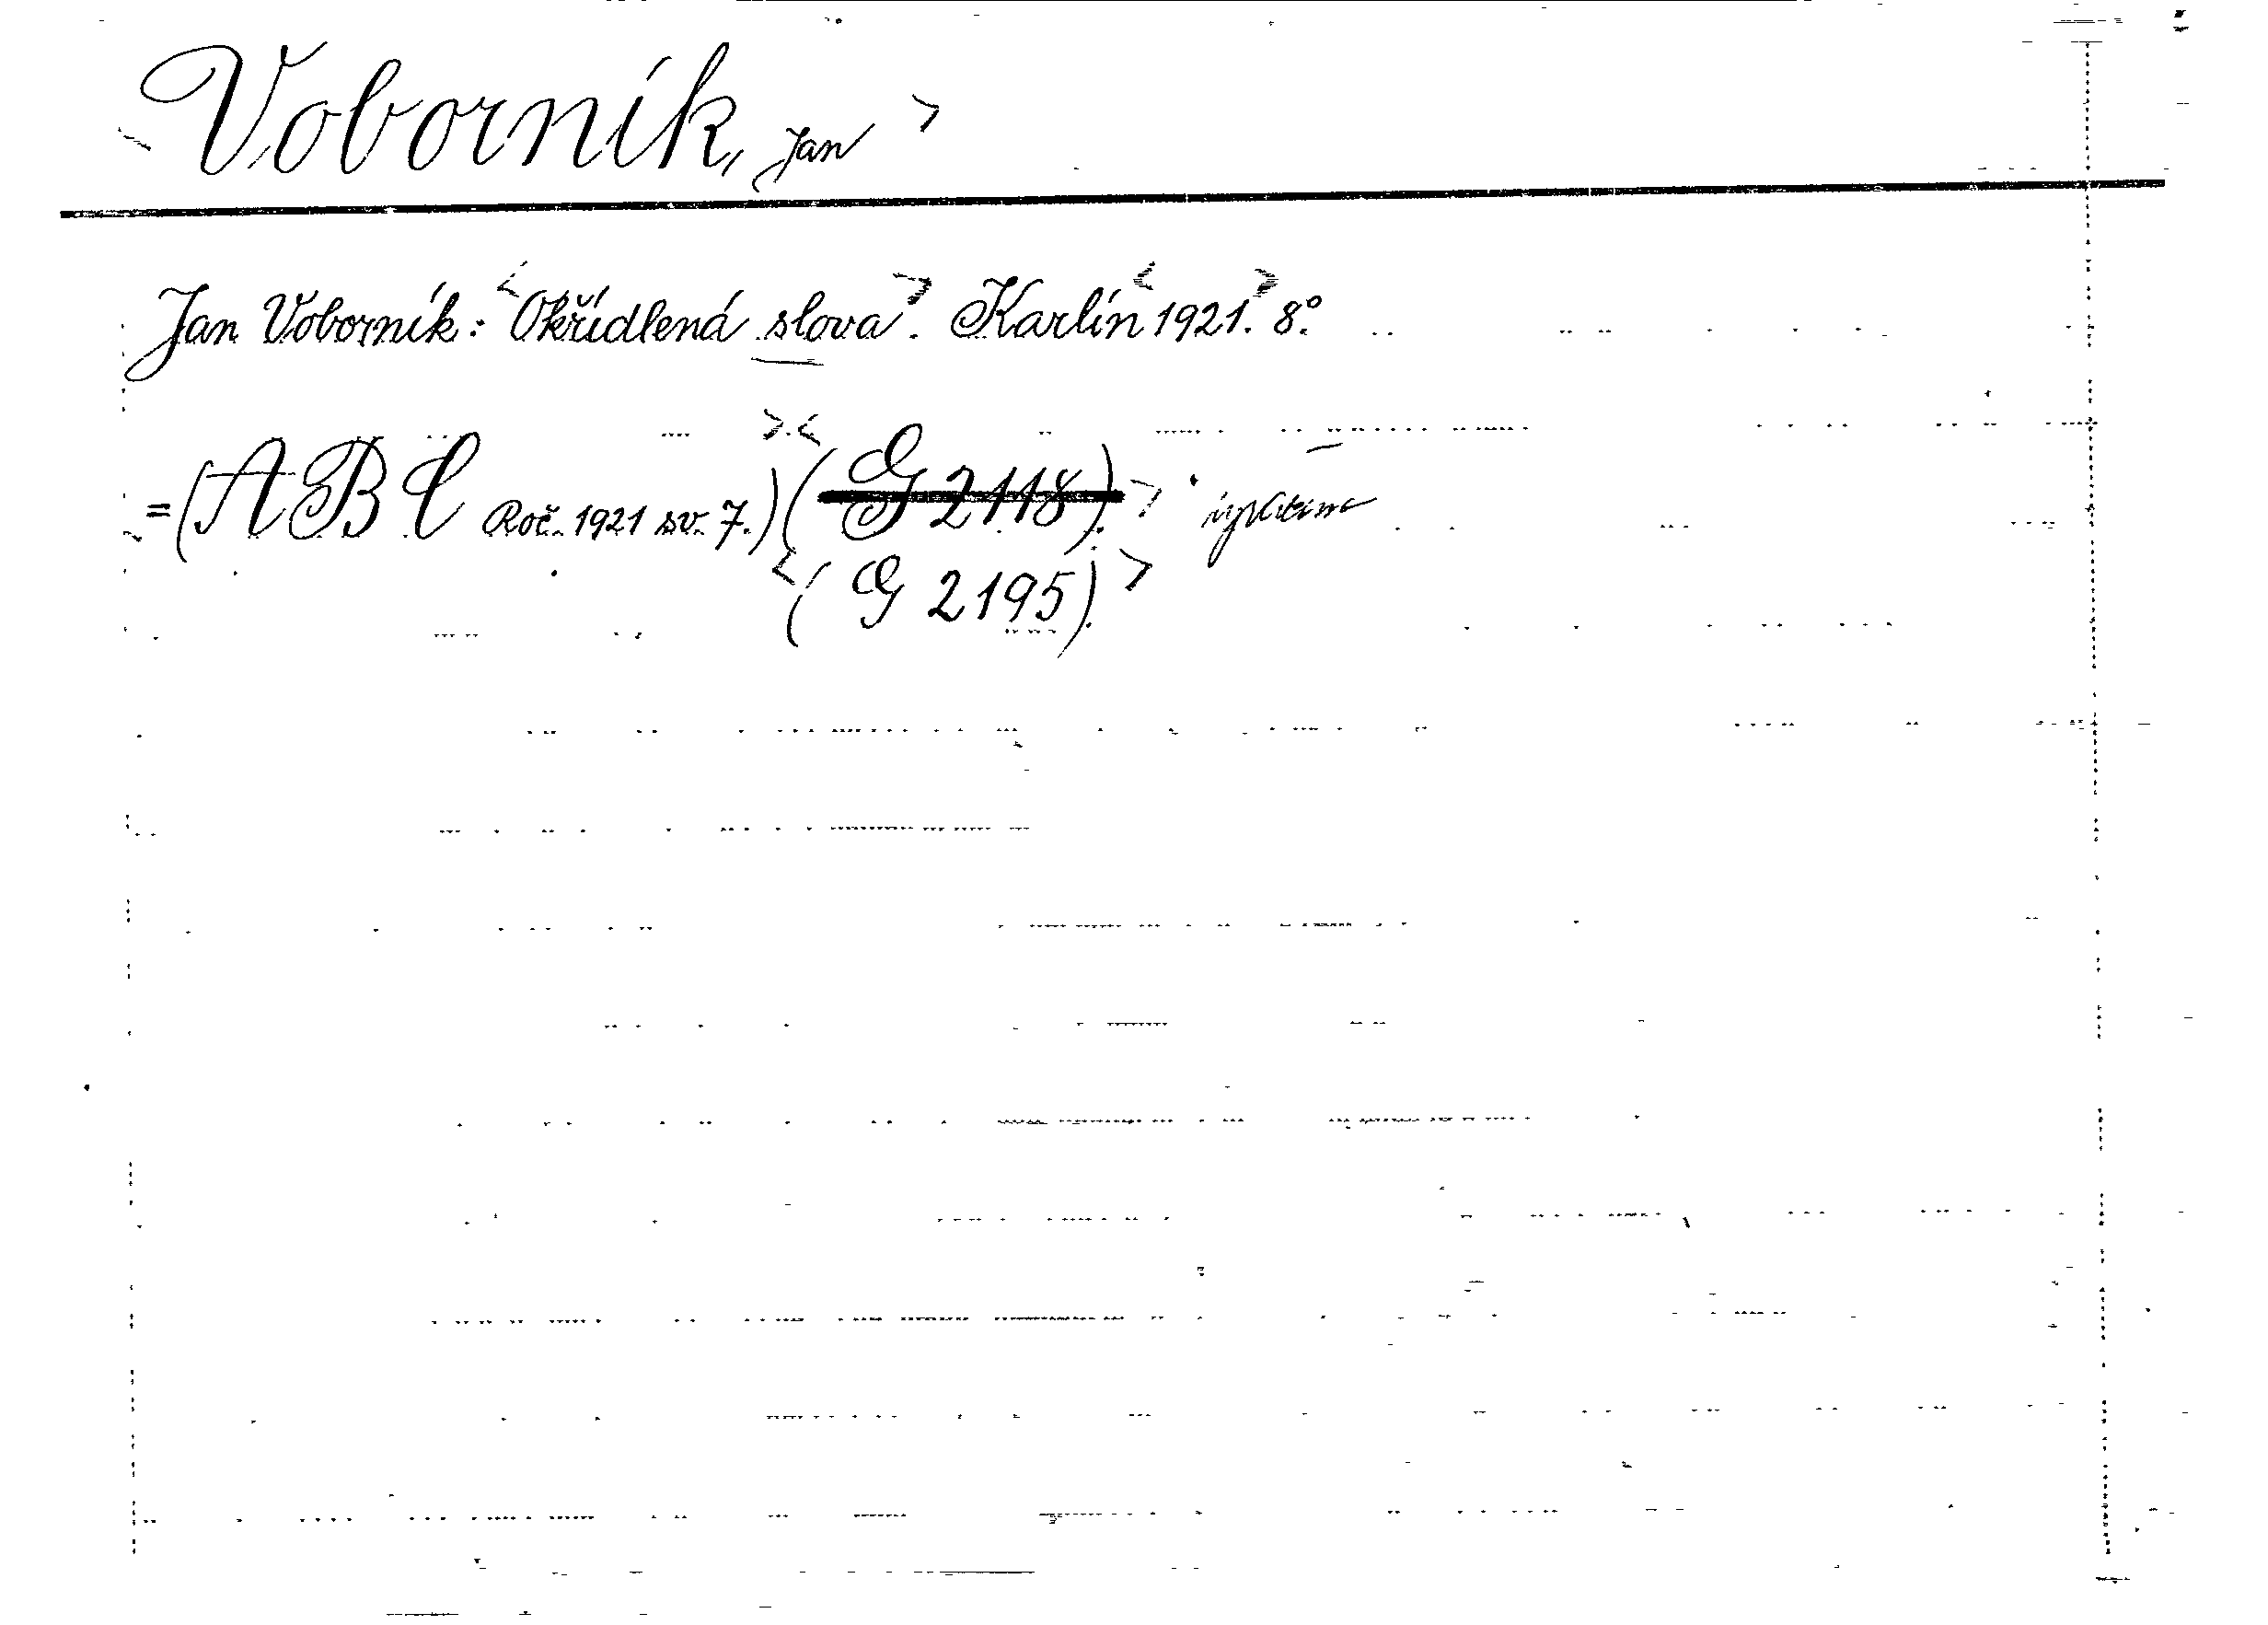 <Voborník, Jan>
Jan Voborník: <Okřídlená slova>. Karlín <1921.> 8°.
=(ABC Roč. 1921 sv. 7.)> <(G 2118).>
<(G 2195).>